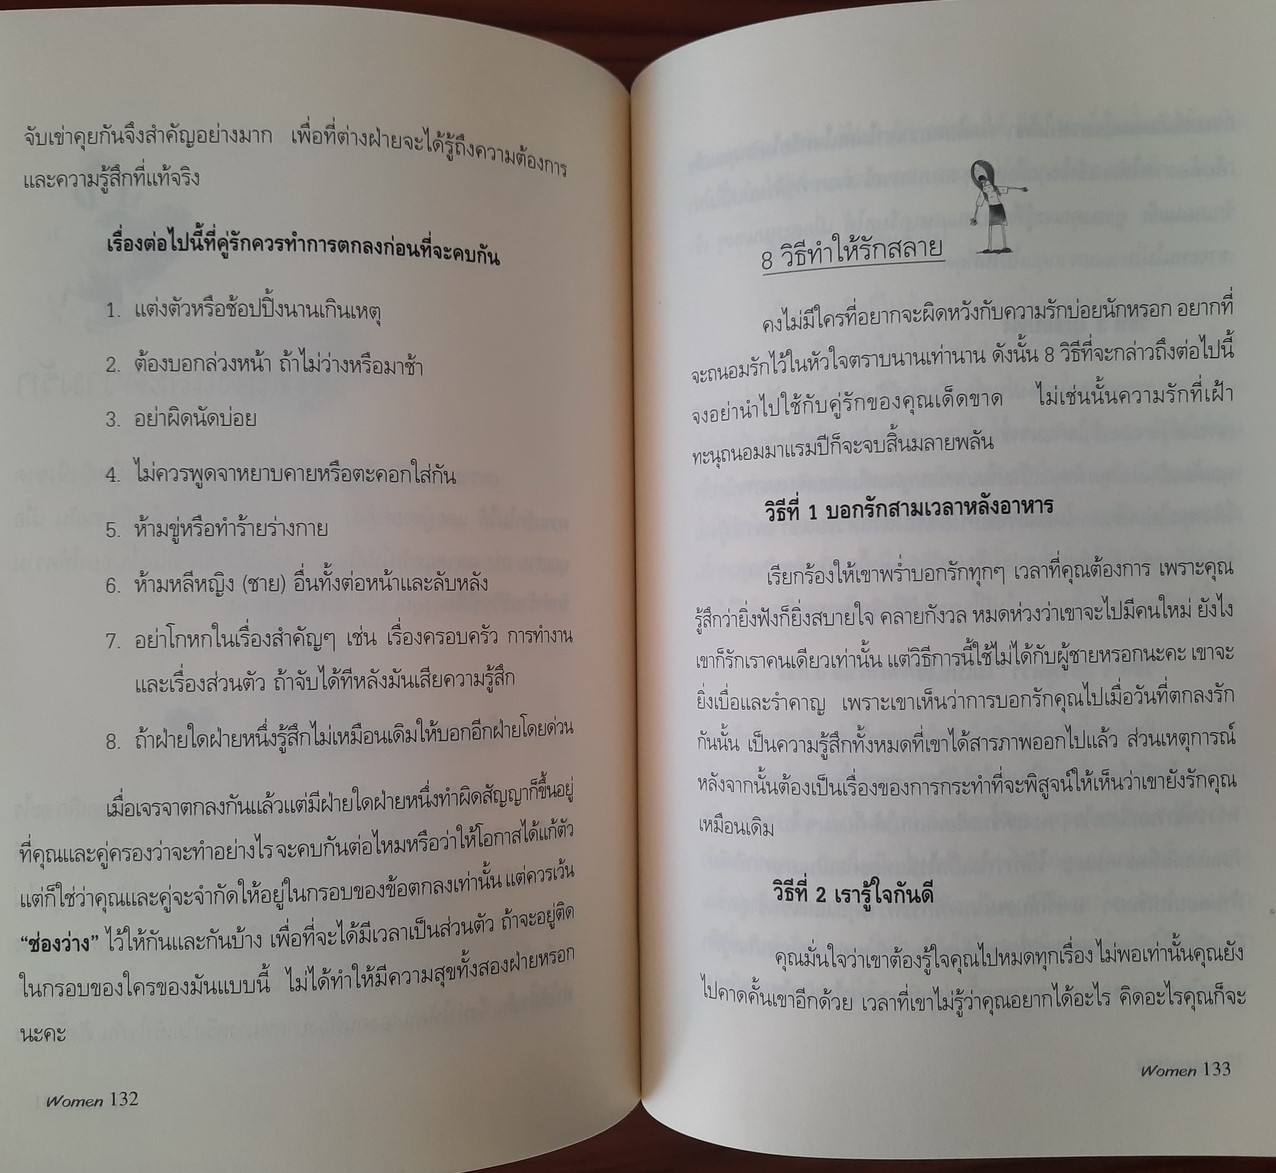 จับเข่าคุยกันจึงสำคัญอย่างมาก เพื่อที่ต่างฝ่ายจะได้รู้ถึงความต้องการ
และความรู้สึกที่แท้จริง
เรื่องต่อไปนี้ที่คู่รักควรทำการตกลงก่อนที่จะคบกัน
1. แต่งตัวหรือช้อปปิ้งนานเกินเหตุ
2. ต้องบอกล่วงหน้า ถ้าไม่ว่างหรือมาช้า
3. อย่าผิดนัดบ่อย
4. ไม่ควรพูดจาหยาบคายหรือตะคอกใส่กัน
5. ห้ามขู่หรือทำร้ายร่างกาย
6. ห้ามหลีหญิง (ชาย) อื่นทั้งต่อหน้าและลับหลัง
7. อย่าโกหกในเรื่องสำคัญๆ เช่น เรื่องครอบครัว การทำงาน
และเรื่องส่วนตัว ถ้าจับได้ทีหลังมันเสียความรู้สึก
8. ถ้าฝ่ายใดฝ่ายหนึ่งรู้สึกไม่เหมือนเดิมให้บอกอีกฝ่ายโดยด่วน
เมื่อเจรจาตกลงกันแล้วแต่มีฝ่ายใดฝ่ายหนึ่งทำผิดสัญญาก็ขึ้นอยู่
ที่คุณและคู่ครองว่าจะทำอย่างไร จะคบกันต่อไหมหรือว่าให้โอกาสได้แก้ตัว
แต่ก็ใช่ว่าคุณและคู่จะจำกัดให้อยู่ในกรอบของข้อตกลงเท่านั้น แต่ควรเว้น
“ช่องว่าง” ไว้ให้กันและกันบ้าง เพื่อที่จะได้มีเวลาเป็นส่วนตัว ถ้าจะอยู่ติด
ในกรอบของใครของมันแบบนี้ ไม่ได้ทำให้มีความสุขทั้งสองฝ่ายหรอก
นะคะ
Women 132
8 วิธีทำให้รักสลาย
คงไม่มีใครที่อยากจะผิดหวังกับความรักบ่อยนักหรอก อยากที่
จะถนอมรักไว้ในหัวใจตราบนานเท่านาน ดังนั้น 8 วิธีที่จะกล่าวถึงต่อไปนี้
จงอย่านำไปใช้กับคู่รักของคุณเด็ดขาด ไม่เช่นนั้นความรักที่เฝ้า
ทะนุถนอมมาแรมปีก็จะจบสิ้นมลายพลัน
วิธีที่ 1 บอกรักสามเวลาหลังอาหาร
เรียกร้องให้เขาพร่ำบอกรักทุกๆ เวลาที่คุณต้องการ เพราะคุณ
รู้สึกว่ายิ่งฟังก็ยิ่งสบายใจ คลายกังวล หมดห่วงว่าเขาจะไปมีคนใหม่ ยังไง
เขาก็รักเราคนเดียวเท่านั้น แต่วิธีการนี้ใช้ไม่ได้กับผู้ชายหรอกนะคะ เขาจะ
ยิ่งเบื่อและรำคาญ เพราะเขาเห็นว่าการบอกรักคุณไปเมื่อวันที่ตกลงรัก
กันนั้น เป็นความรู้สึกทั้งหมดที่เขาได้สารภาพออกไปแล้ว ส่วนเหตุการณ์
หลังจากนั้นต้องเป็นเรื่องของการกระทำที่จะพิสูจน์ให้เห็นว่าเขายังรักคุณ
เหมือนเดิม
วิธีที่ 2 เรารู้ใจกันดี
คุณมั่นใจว่าเขาต้องรู้ใจคุณไปหมดทุกเรื่อง ไม่พอเท่านั้นคุณยัง
ไปคาดคั้นเขาอีกด้วย เวลาที่เขาไม่รู้ว่าคุณอยากได้อะไร คิดอะไรคุณก็จะ
Women 133